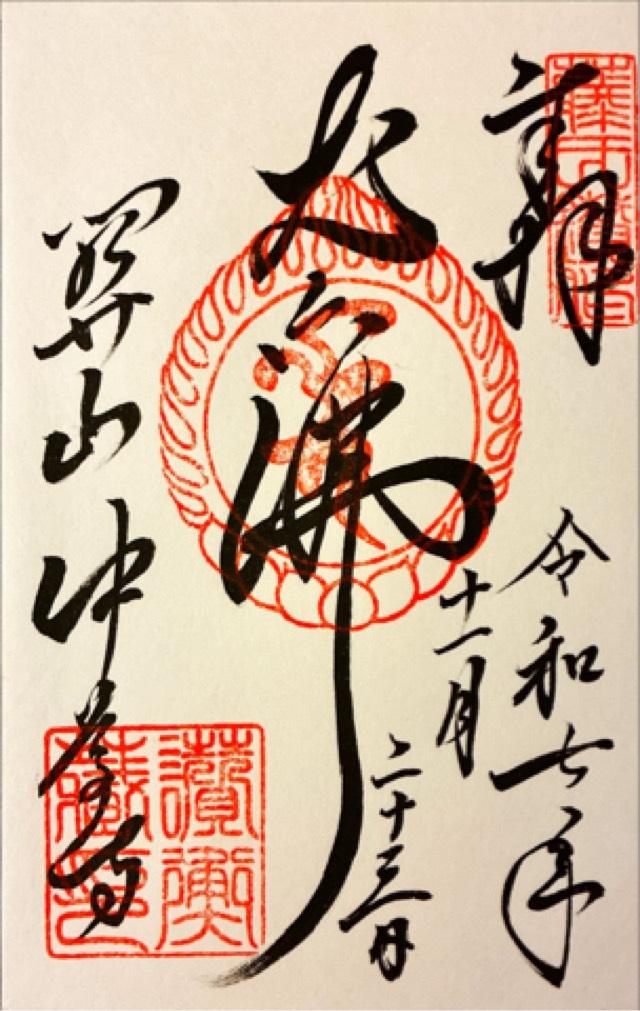 奉拝
令和七年
十一月
二十三日
丈六佛
關山中尊寺
讚衡
藏印